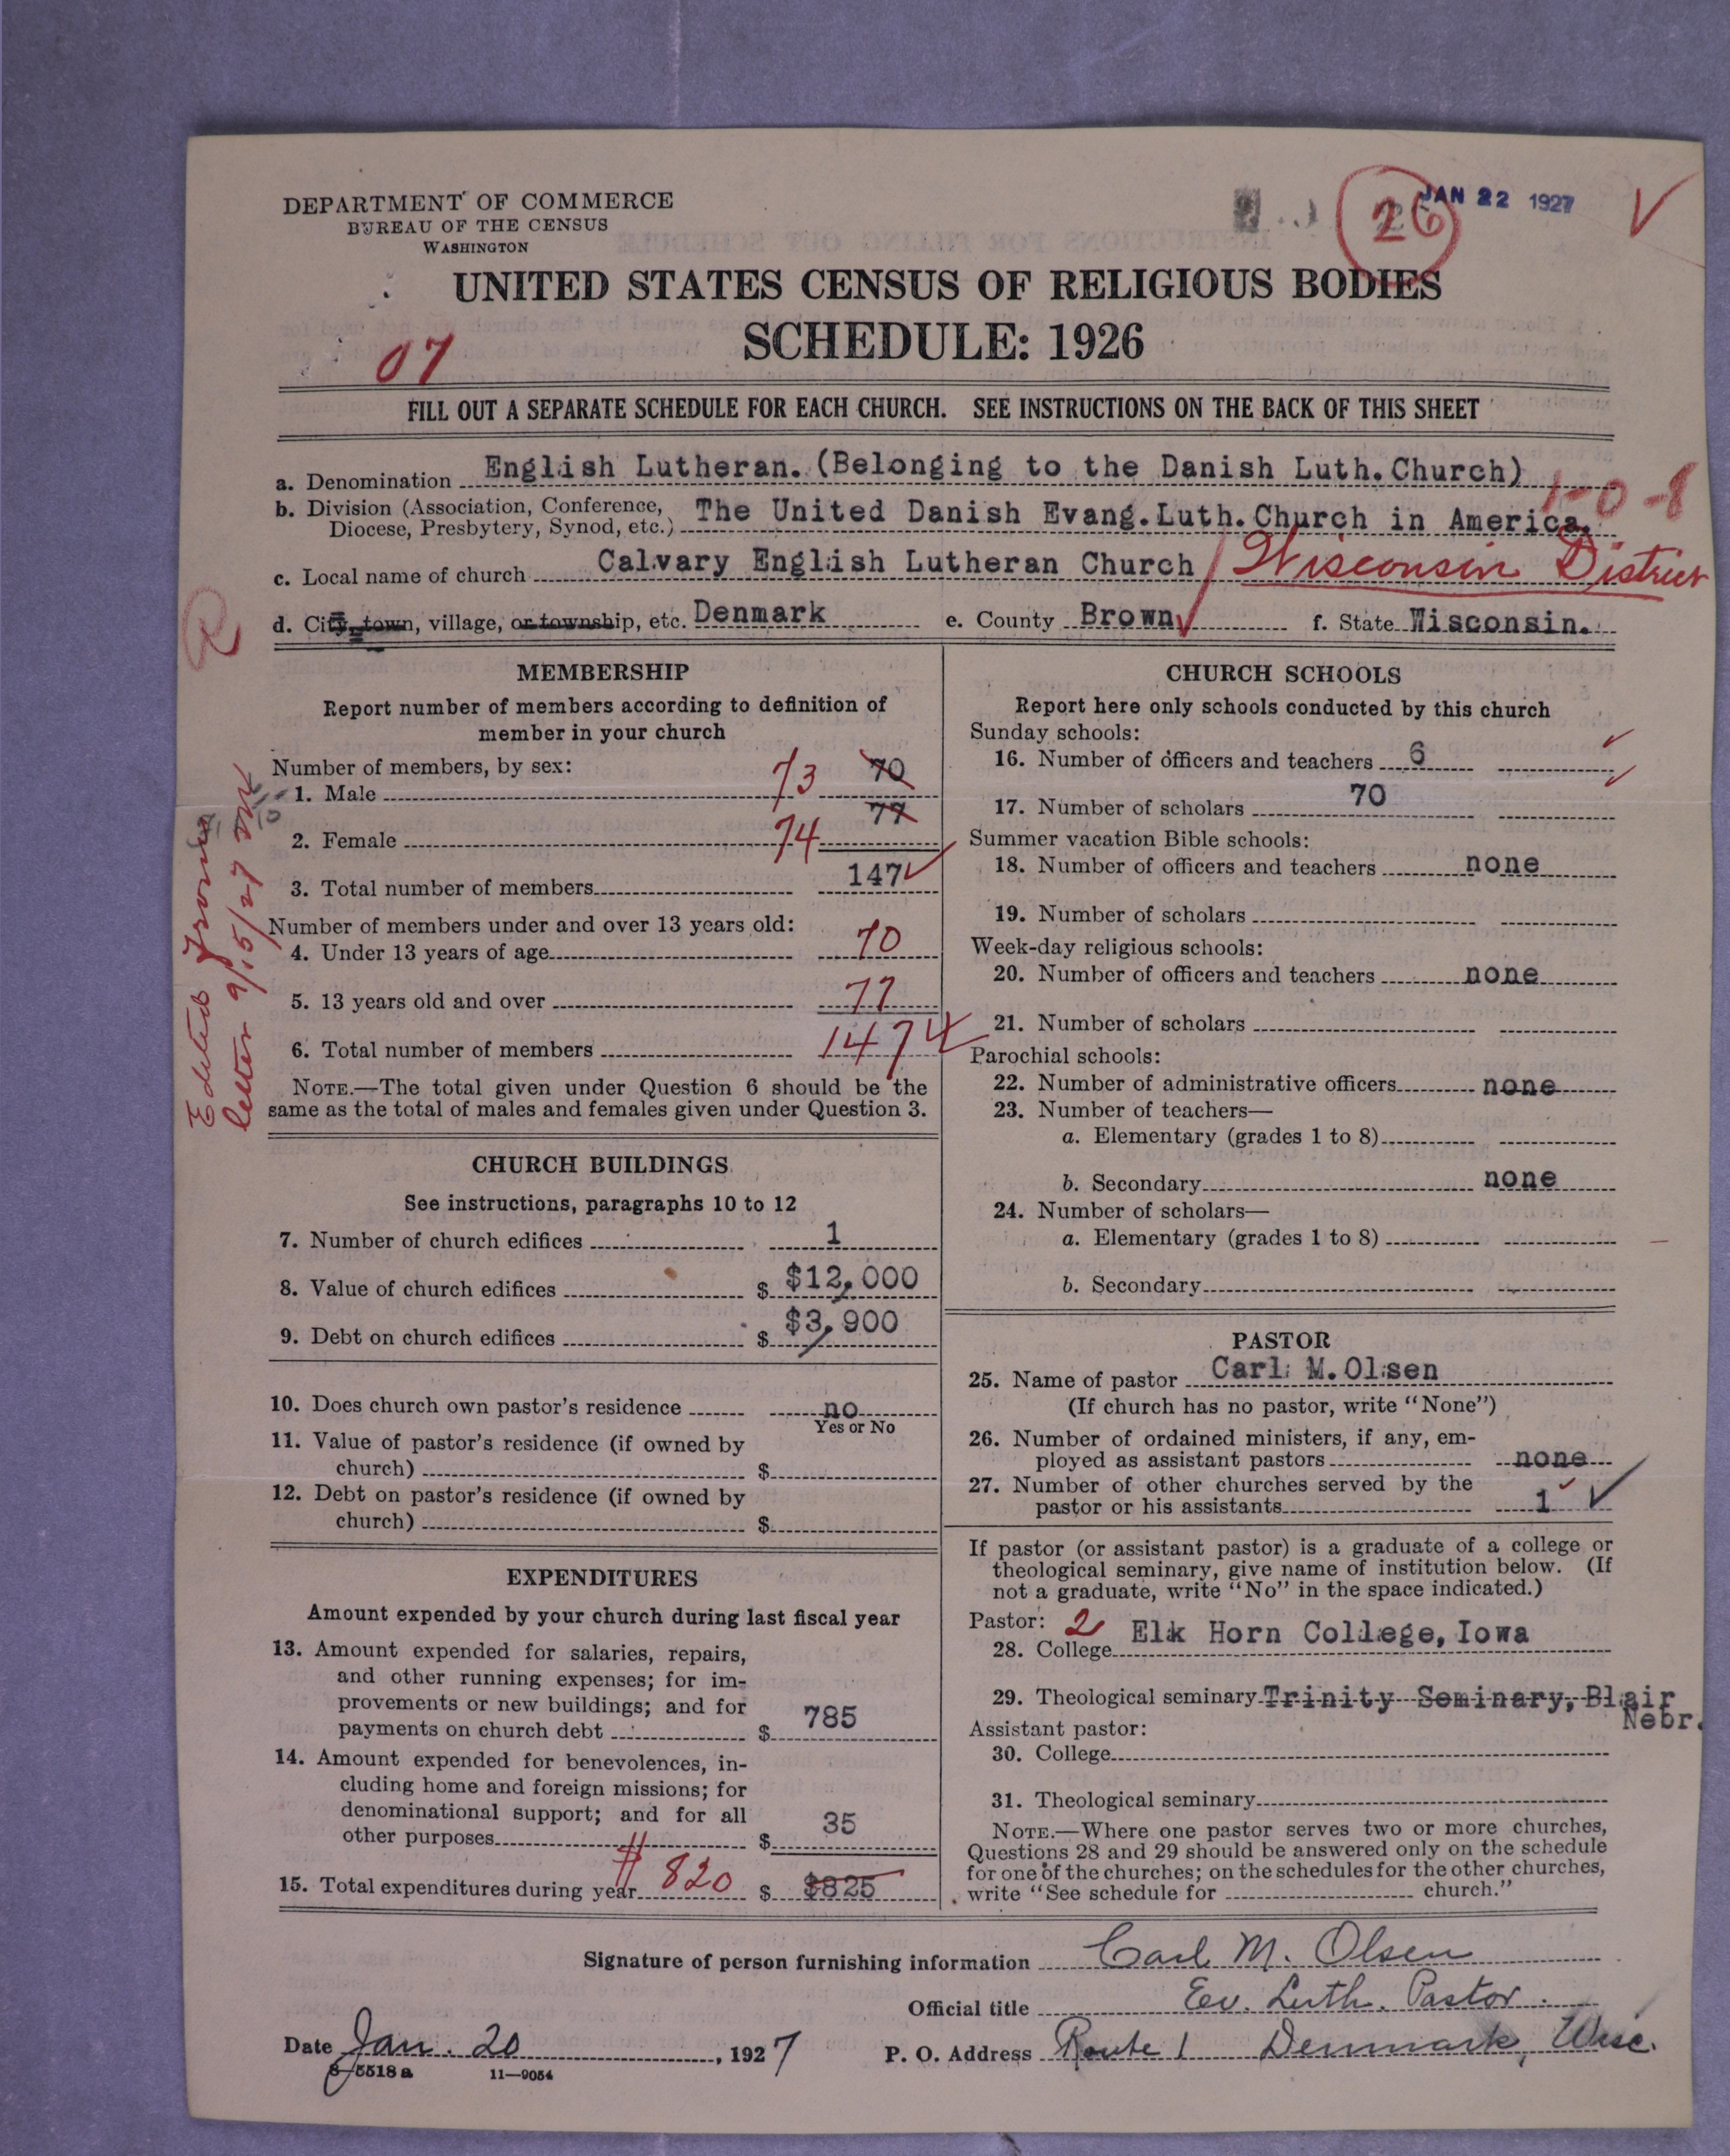 DEPARTMENT OF COMMERCE
BUREAU OF THE CENSUS
WASHINGTON
26
JAN 22 1927
UNITED STATES CENSUS OF RELIGIOUS BODIES
SCHEDULE: 1926
07
FILL OUT A SEPARATE SCHEDULE FOR EACH CHURCH. SEE INSTRUCTIONS ON THE BACK OF THIS SHEET
a. Denomination English Lutheran. (Belonging to the Danish Luth. Church)
1-0-8
b. Division (Association, Conference,
Diocese, Presbytery, Synod, etc.) The United Danish Evang. Luth. Church in America.
c. Local name of church Calvary English Lutheran Church / Wisconsin District
d. City, town, village, or township, etc. Denmark e. County Brown f. State Wisconsin.
MEMBERSHIP
Report number of members according to definition of
member in your church
Number of members, by sex:
1. Male 73 70
2. Female 74 77
3. Total number of members 147
Number of members under and over 13 years old:
4. Under 13 years of age 70
5. 13 years old and over 77
6. Total number of members 147
NOTE.—The total given under Question 6 should be the
same as the total of males and females given under Question 3.
Edited from
letter 9/15/27
CHURCH BUILDINGS
See instructions, paragraphs 10 to 12
7. Number of church edifices 1
8. Value of church edifices $ $12,000
9. Debt on church edifices $ $3,900
10. Does church own pastor's residence no
Yes or No
11. Value of pastor's residence (if owned by
church) $
12. Debt on pastor's residence (if owned by
church) $
EXPENDITURES
Amount expended by your church during last fiscal year
13. Amount expended for salaries, repairs,
and other running expenses; for im-
provements or new buildings; and for
payments on church debt $ 785
14. Amount expended for benevolences, in-
cluding home and foreign missions; for
denominational support; and for all
other purposes $ 35
15. Total expenditures during year $820 $ $825
CHURCH SCHOOLS
Report here only schools conducted by this church
Sunday schools:
16. Number of officers and teachers 6
17. Number of scholars 70
Summer vacation Bible schools:
18. Number of officers and teachers none
19. Number of scholars
Week-day religious schools:
20. Number of officers and teachers none
21. Number of scholars
Parochial schools:
22. Number of administrative officers none
23. Number of teachers—
a. Elementary (grades 1 to 8)
b. Secondary none
24. Number of scholars—
a. Elementary (grades 1 to 8)
b. Secondary
PASTOR
25. Name of pastor Carl M. Olsen
(If church has no pastor, write "None")
26. Number of ordained ministers, if any, em-
ployed as assistant pastors none
27. Number of other churches served by the
pastor or his assistants 1
If pastor (or assistant pastor) is a graduate of a college or
theological seminary, give name of institution below. (If
not a graduate, write "No" in the space indicated.)
Pastor: 2
28. College Elk Horn College, Iowa
29. Theological seminary Trinity Seminary, Blair
Nebr.
Assistant pastor:
30. College
31. Theological seminary
NOTE.—Where one pastor serves two or more churches,
Questions 28 and 29 should be answered only on the schedule
for one of the churches; on the schedules for the other churches,
write "See schedule for church."
Signature of person furnishing information Carl M. Olsen
Official title Ev. Luth. Pastor.
Date Jan. 20, 1927 P. O. Address Route 1 Denmark, Wisc.
8-5518 a 11—9054